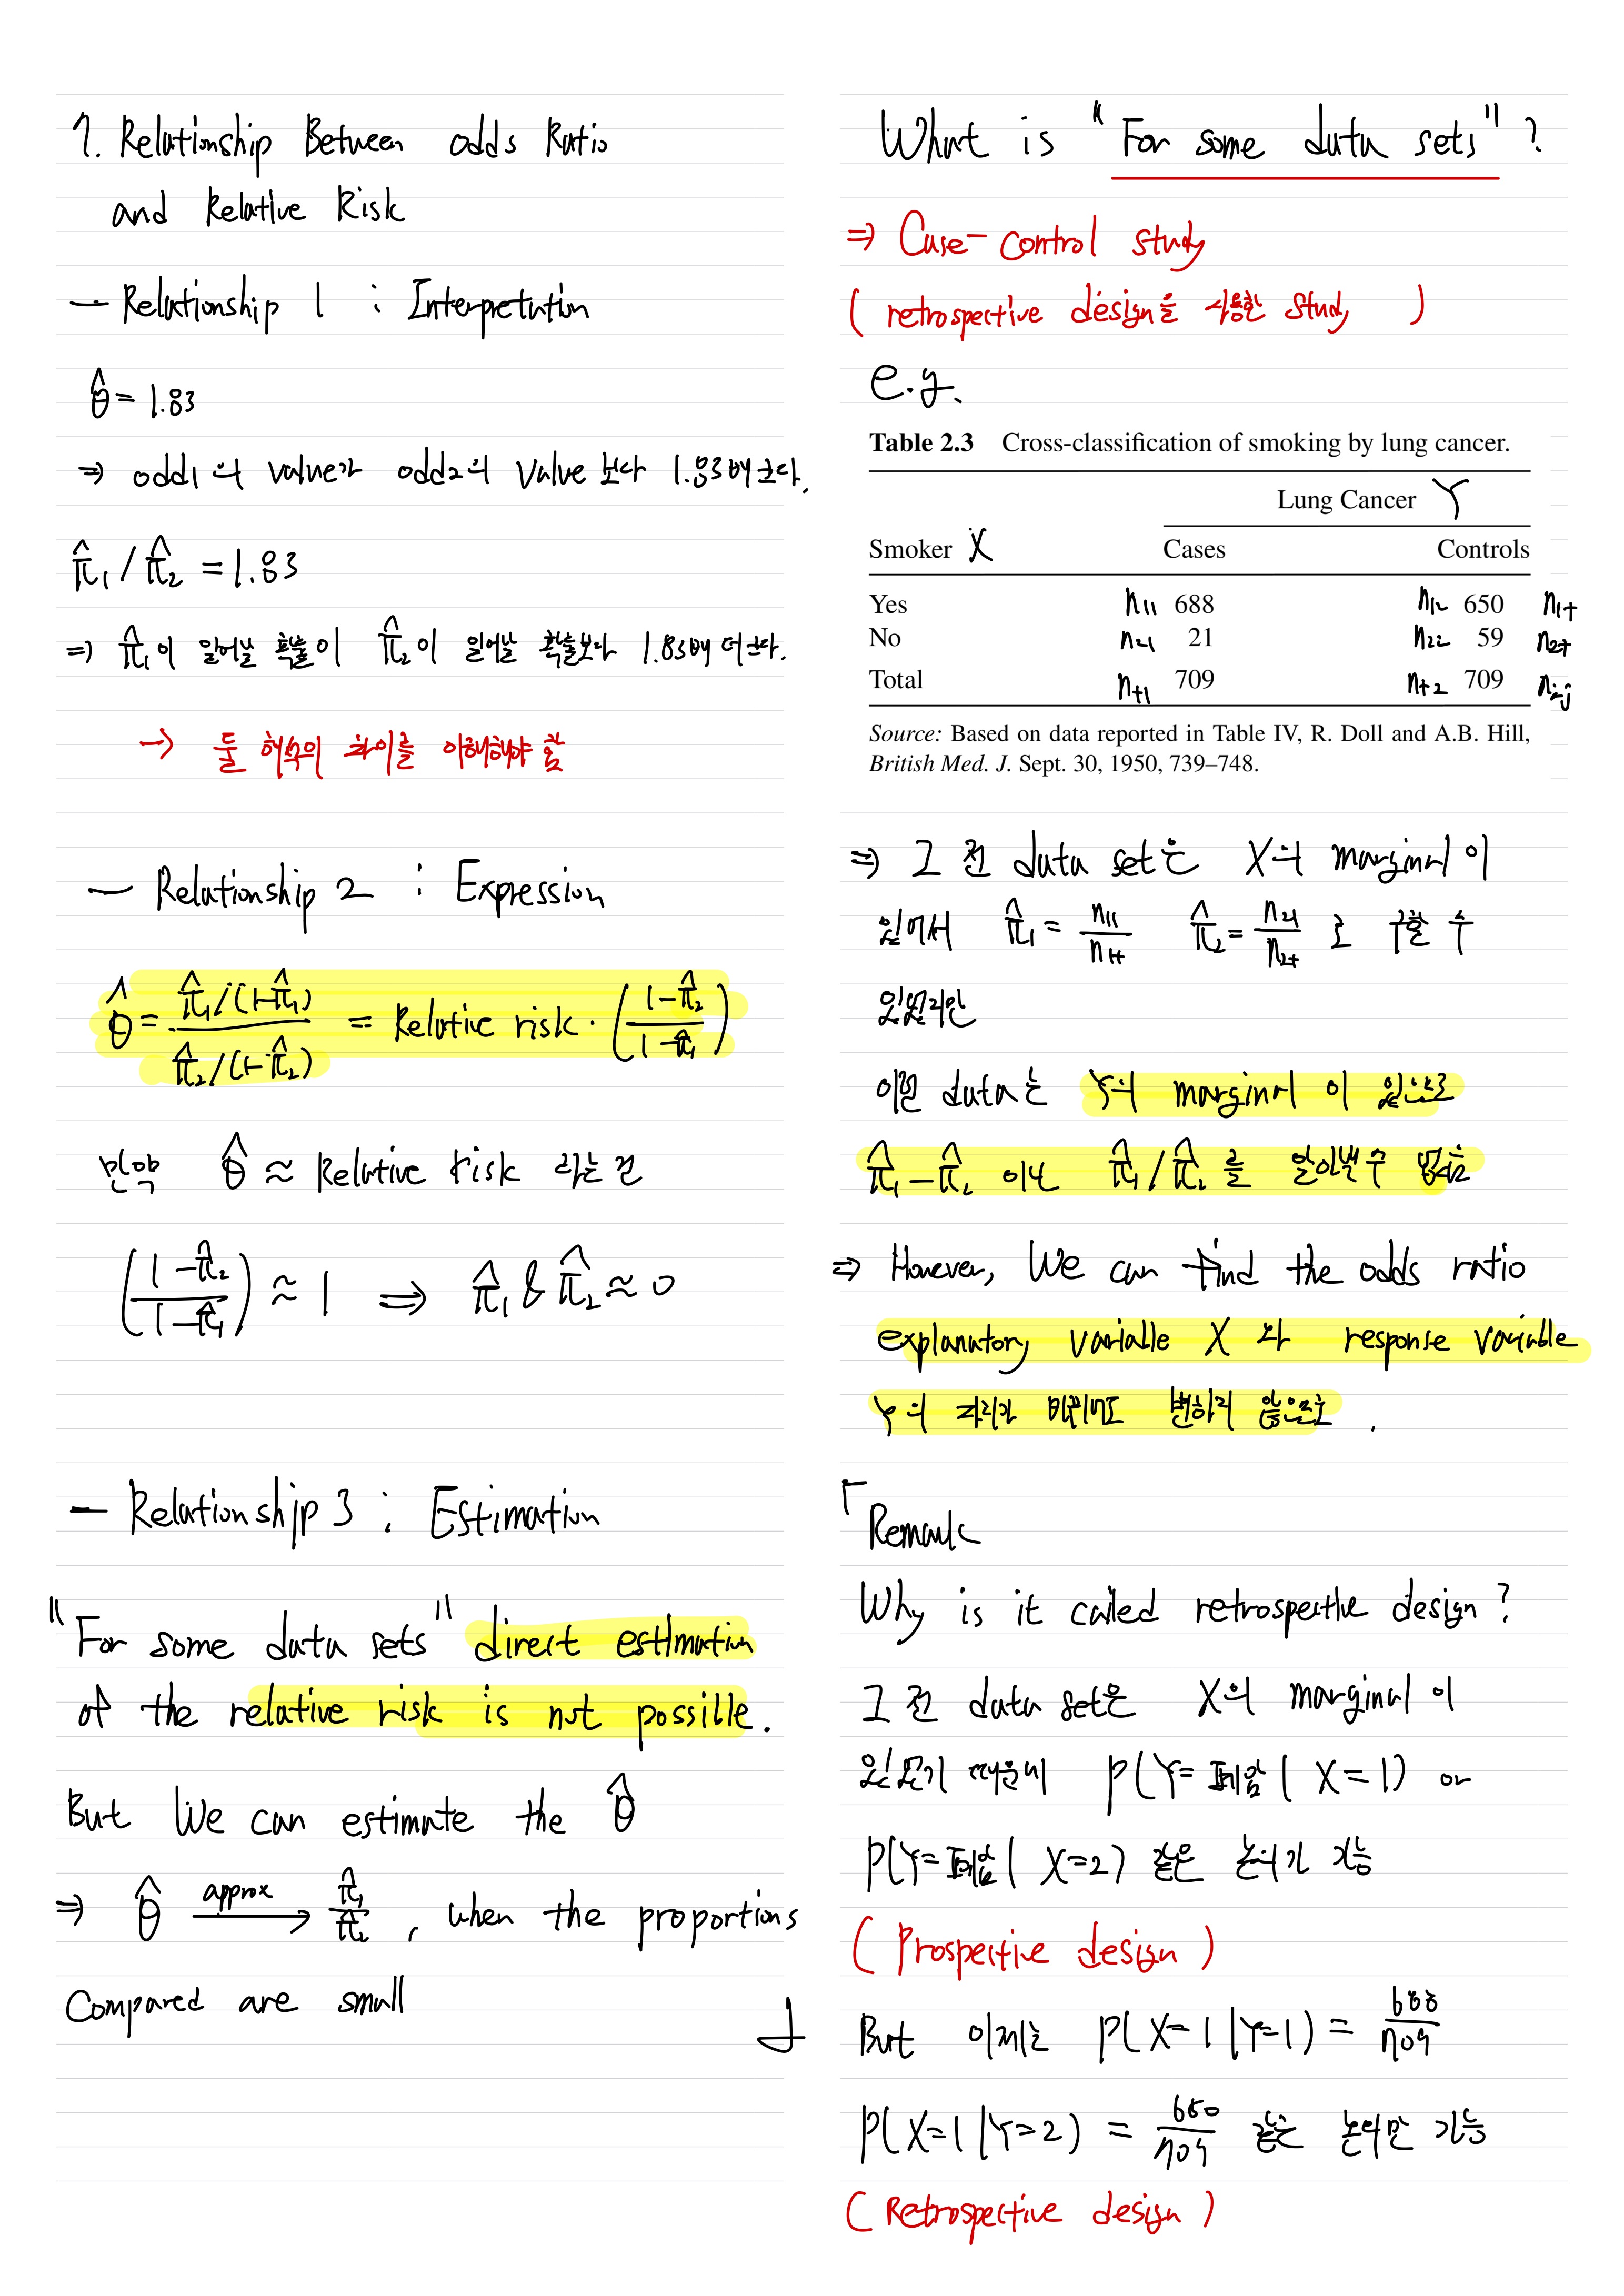 7. Relationship Between odds Ratio
and Relative Risk
- Relationship 1 : Interpretation
θ̂ = 1.83
⇒ odd1 의 value가 odd2의 value 보다 1.83배 크다.
π̂₁ / π̂₂ = 1.83
⇒ π̂₁이 일어날 확률이 π̂₂이 일어날 확률보다 1.83배 더 크다.
→ 둘 해석의 차이를 이해해야 함
- Relationship 2 : Expression
θ̂ = π̂₁/(1-π̂₁) / π̂₂/(1-π̂₂) = Relative risk · (1-π̂₂ / 1-π̂₁)
만약 θ̂ ≈ Relative risk 라는 건
(1-π̂₂ / 1-π̂₁) ≈ 1 ⟹ π̂₁ & π̂₂ ≈ 0
- Relationship 3 : Estimation
"For some data sets" direct estimation
of the relative risk is not possible.
But We can estimate the θ̂
⇒ θ̂ approx → π̂₁/π̂₂, when the proportions
Compared are small 」
What is "For some data sets"?
⇒ Case-control study
( retrospective design을 사용한 study )
e.g.
Table 2.3 Cross-classification of smoking by lung cancer.
Lung Cancer Y
Smoker X Cases Controls
Yes n₁₁ 688 n₁₂ 650 n₁₊
No n₂₁ 21 n₂₂ 59 n₂₊
Total n₊₁ 709 n₊₂ 709 nᵢⱼ
Source: Based on data reported in Table IV, R. Doll and A.B. Hill,
British Med. J. Sept. 30, 1950, 739–748.
⇒ 그 전 data set은 X의 marginal 이
있어서 π̂₁ = n₁₁/n₁₊ π̂₂ = n₂₁/n₂₊ 로 구할 수
있었지만
이번 data는 Y의 marginal 이 있으므로
π̂₁ - π̂₂ 이나 π̂₁/π̂₂ 를 알아낼 수 없음
⇒ However, We can find the odds ratio
explanatory variable X 와 response variable
Y의 자리가 바뀌어도 변하지 않으므로.
「Remark
Why is it called retrospective design?
그 전 data set은 X의 marginal 이
있었기 때문에 P(Y=폐암 | X=1) or
P(Y=폐암 | X=2) 같은 논의가 가능
( Prospective design )
But 이제는 P(X=1 | Y=1) = 688/709
P(X=1 | Y=2) = 650/709 같은 논의만 가능
( Retrospective design )